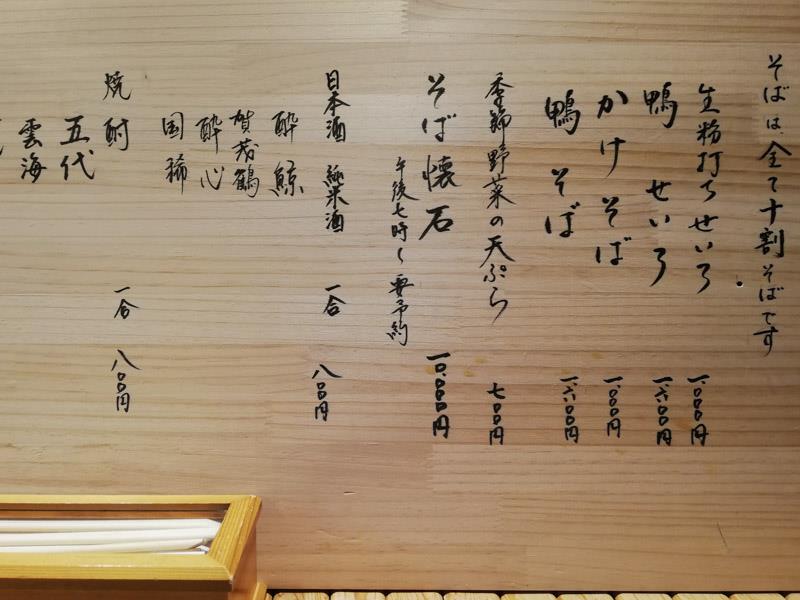 そばは、全て十割そばです
生粉打ちせいろ 一、〇〇〇円
鴨せいろ 一、六〇〇円
かけそば 一、〇〇〇円
鴨そば 一、六〇〇円
季節野菜の天ぷら 七〇〇円
そば懐石 一〇、〇〇〇円
午後七時〜要予約
日本酒 純米酒 一合 八〇〇円
酔鯨
賀茂鶴
酔心
国稀
焼酎 一合 八〇〇円
五代
雲海